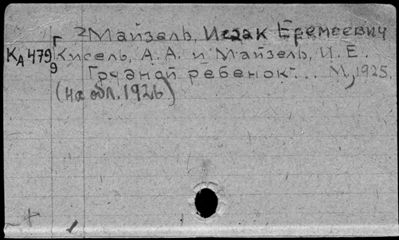 2 Майзель, Исаак Еремеевич
КА 479 Кисель, А. А. и Майзель, И. Е.
9 Грудной ребенок... М, 1925.
(на обл. 1926)
+ 1